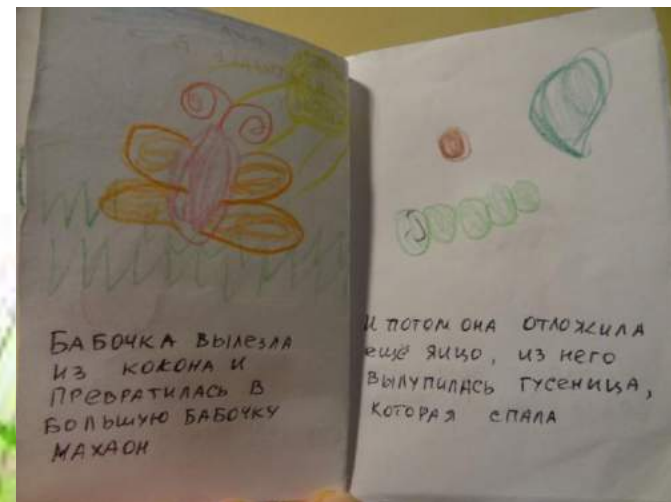 БАБОЧКА ВЫЛЕЗЛА
ИЗ КОКОНА И
ПРЕВРАТИЛАСЬ В
БОЛЬШУЮ БАБОЧКУ
МАХАОН
И ПОТОМ ОНА ОТЛОЖИЛА
ЕЩЁ ЯЙЦО, ИЗ НЕГО
ВЫЛУПИЛАСЬ ГУСЕНИЦА,
КОТОРАЯ СПАЛА